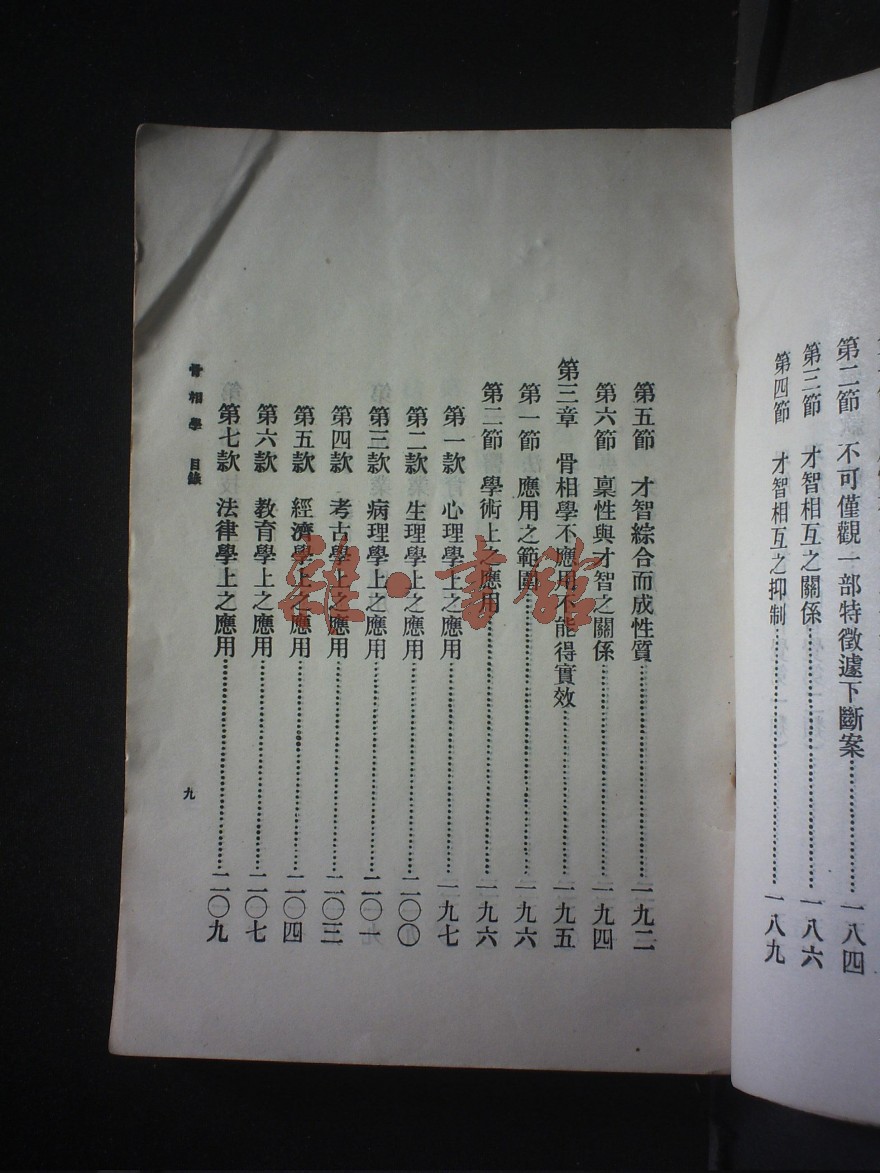 第二節　不可僅觀一部特徵遽下斷案…………一八四
第三節　才智相互之關係…………一八六
第四節　才智相互之抑制…………一八九
第五節　才智綜合而成性質…………一九二
第六節　稟性與才智之關係…………一九四
第三章　骨相學不應用不能得實效…………一九五
第一節　應用之範圍…………一九六
第二節　學術上之應用…………一九六
第一款　心理學上之應用…………一九七
第二款　生理學上之應用…………二〇〇
第三款　病理學上之應用…………二〇一
第四款　考古學上之應用…………二〇三
第五款　經濟學上之應用…………二〇四
第六款　教育學上之應用…………二〇七
第七款　法律學上之應用…………二〇九
骨相學　目錄
九
雜·書館